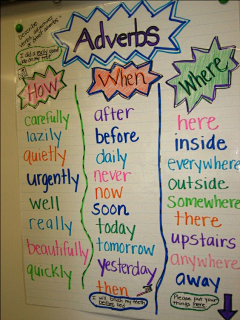 Adverbs
How
carefully
lazily
quietly
urgently
well
really
beautifully
quickly
When
after
before
daily
never
now
soon
today
tomorrow
yesterday
then
I will brush my teeth
before bed.
Where
here
inside
everywhere
outside
somewhere
there
upstairs
anywhere
away
Please put your
things here.